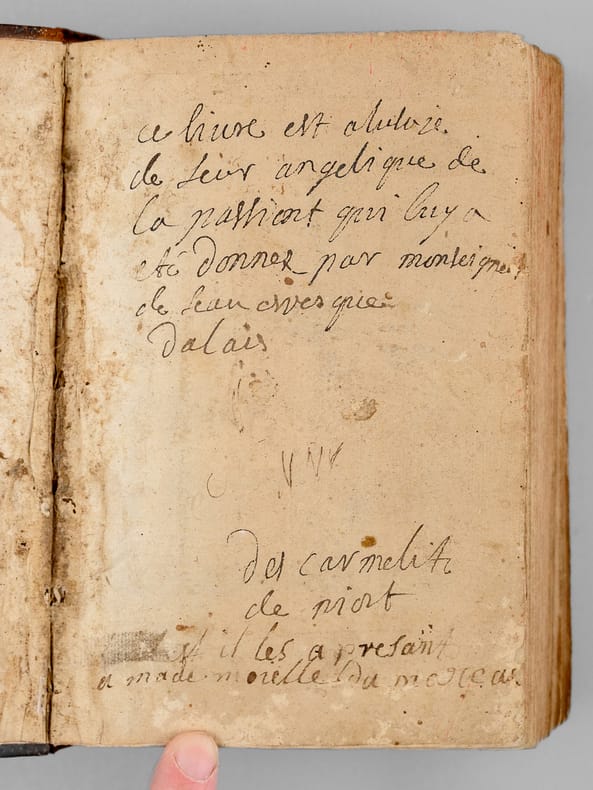 ce liure est aluluie
de seur angelique de
la passiont qui luy a
eté donnez par monseigneur
de seau evesque
dalais
des carmelite
de niort
et il les apresant
a made moiselle du